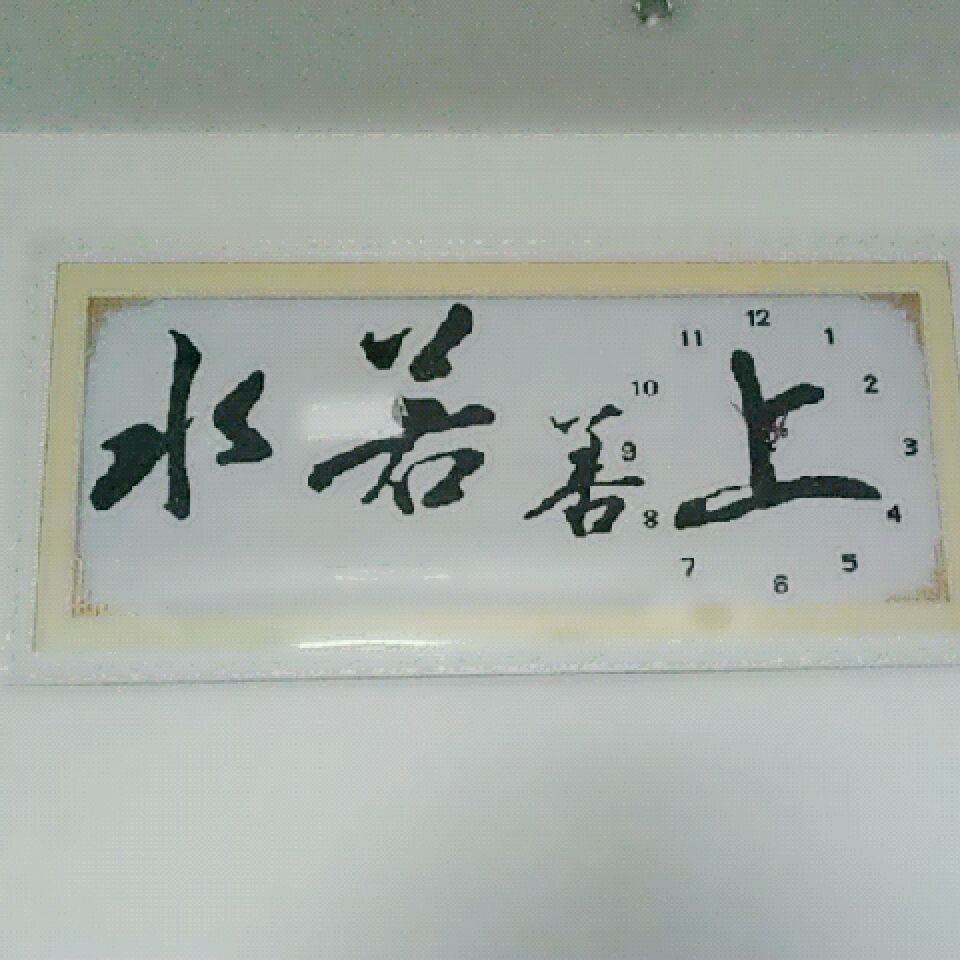 上善若水
12
1
2
3
4
5
6
7
8
9
10
11